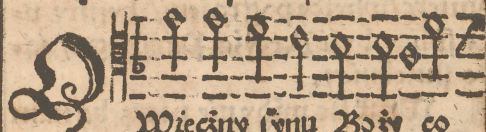 O
Wieczny synu Boży co